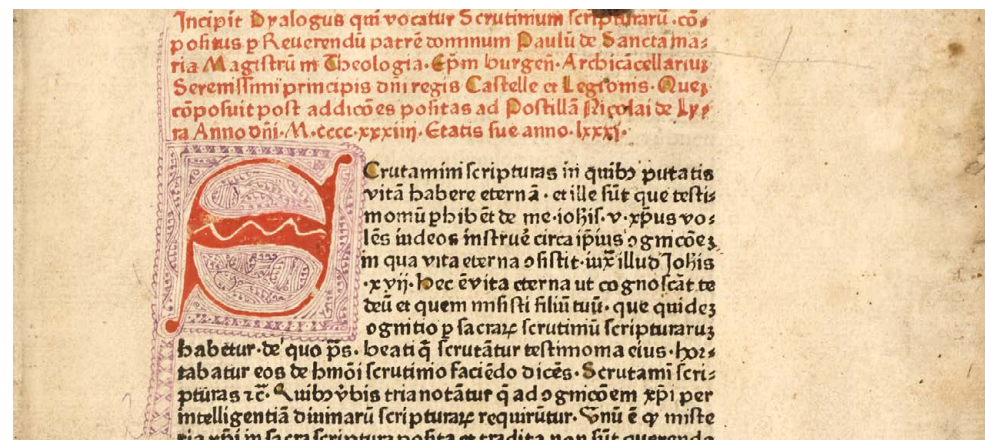 Incipit Dyalogus qui vocatur Scrutinium scripturarū ·cō⸗
positus p Reuerendū patrē dominum Paulū de Sancta ma⸗
ria Magistrū in Theologia · Ep̄m burgen̄ · Archicācellariuꝫ
Serenissimi principis dn̄i regis Castelle et Legionis · Queꝫ
cōposuit post addicōes positas ad Postillā Nicolai de Ly⸗
ra Anno dn̄i · M·cccc·xxxiiij · Etatis sue anno·lxxxj·
SCrutamini scripturas in quibꝯ putatis
vitā habere eternā · et ille sūt que testi⸗
moniū phibēt de me·ioh̄is·v·xp̄us vo⸗
lēs iudeos instruē circa ip̄ius ꝯgnicōeꝫ
in qua vita eterna ꝯsistit·iux̄ illud Joh̄is
·xvij· hec ē vita eterna ut cognoscāt te
deū et quem misisti filiū tuū · que quideꝫ
ꝯgnitio p sacraꝝ scrutiniū scripturaruꝫ
habetur·de quo p̄s· beati q̄ scrutātur testimonia eius·hor⸗
tabatur eos de hmōi scrutinio faciēdo dicēs· Scrutami scri⸗
pturas ⁊c̄· Quibꝯ v̾bis tria notātur q̄ ad ꝯgnicōem xp̄i per
intelligentiā diuinarū scripturaꝝ requirūtur· Vnū ē ꝙ miste
ria xp̄i in sacra scriptura posita et tradita non sūt querenda